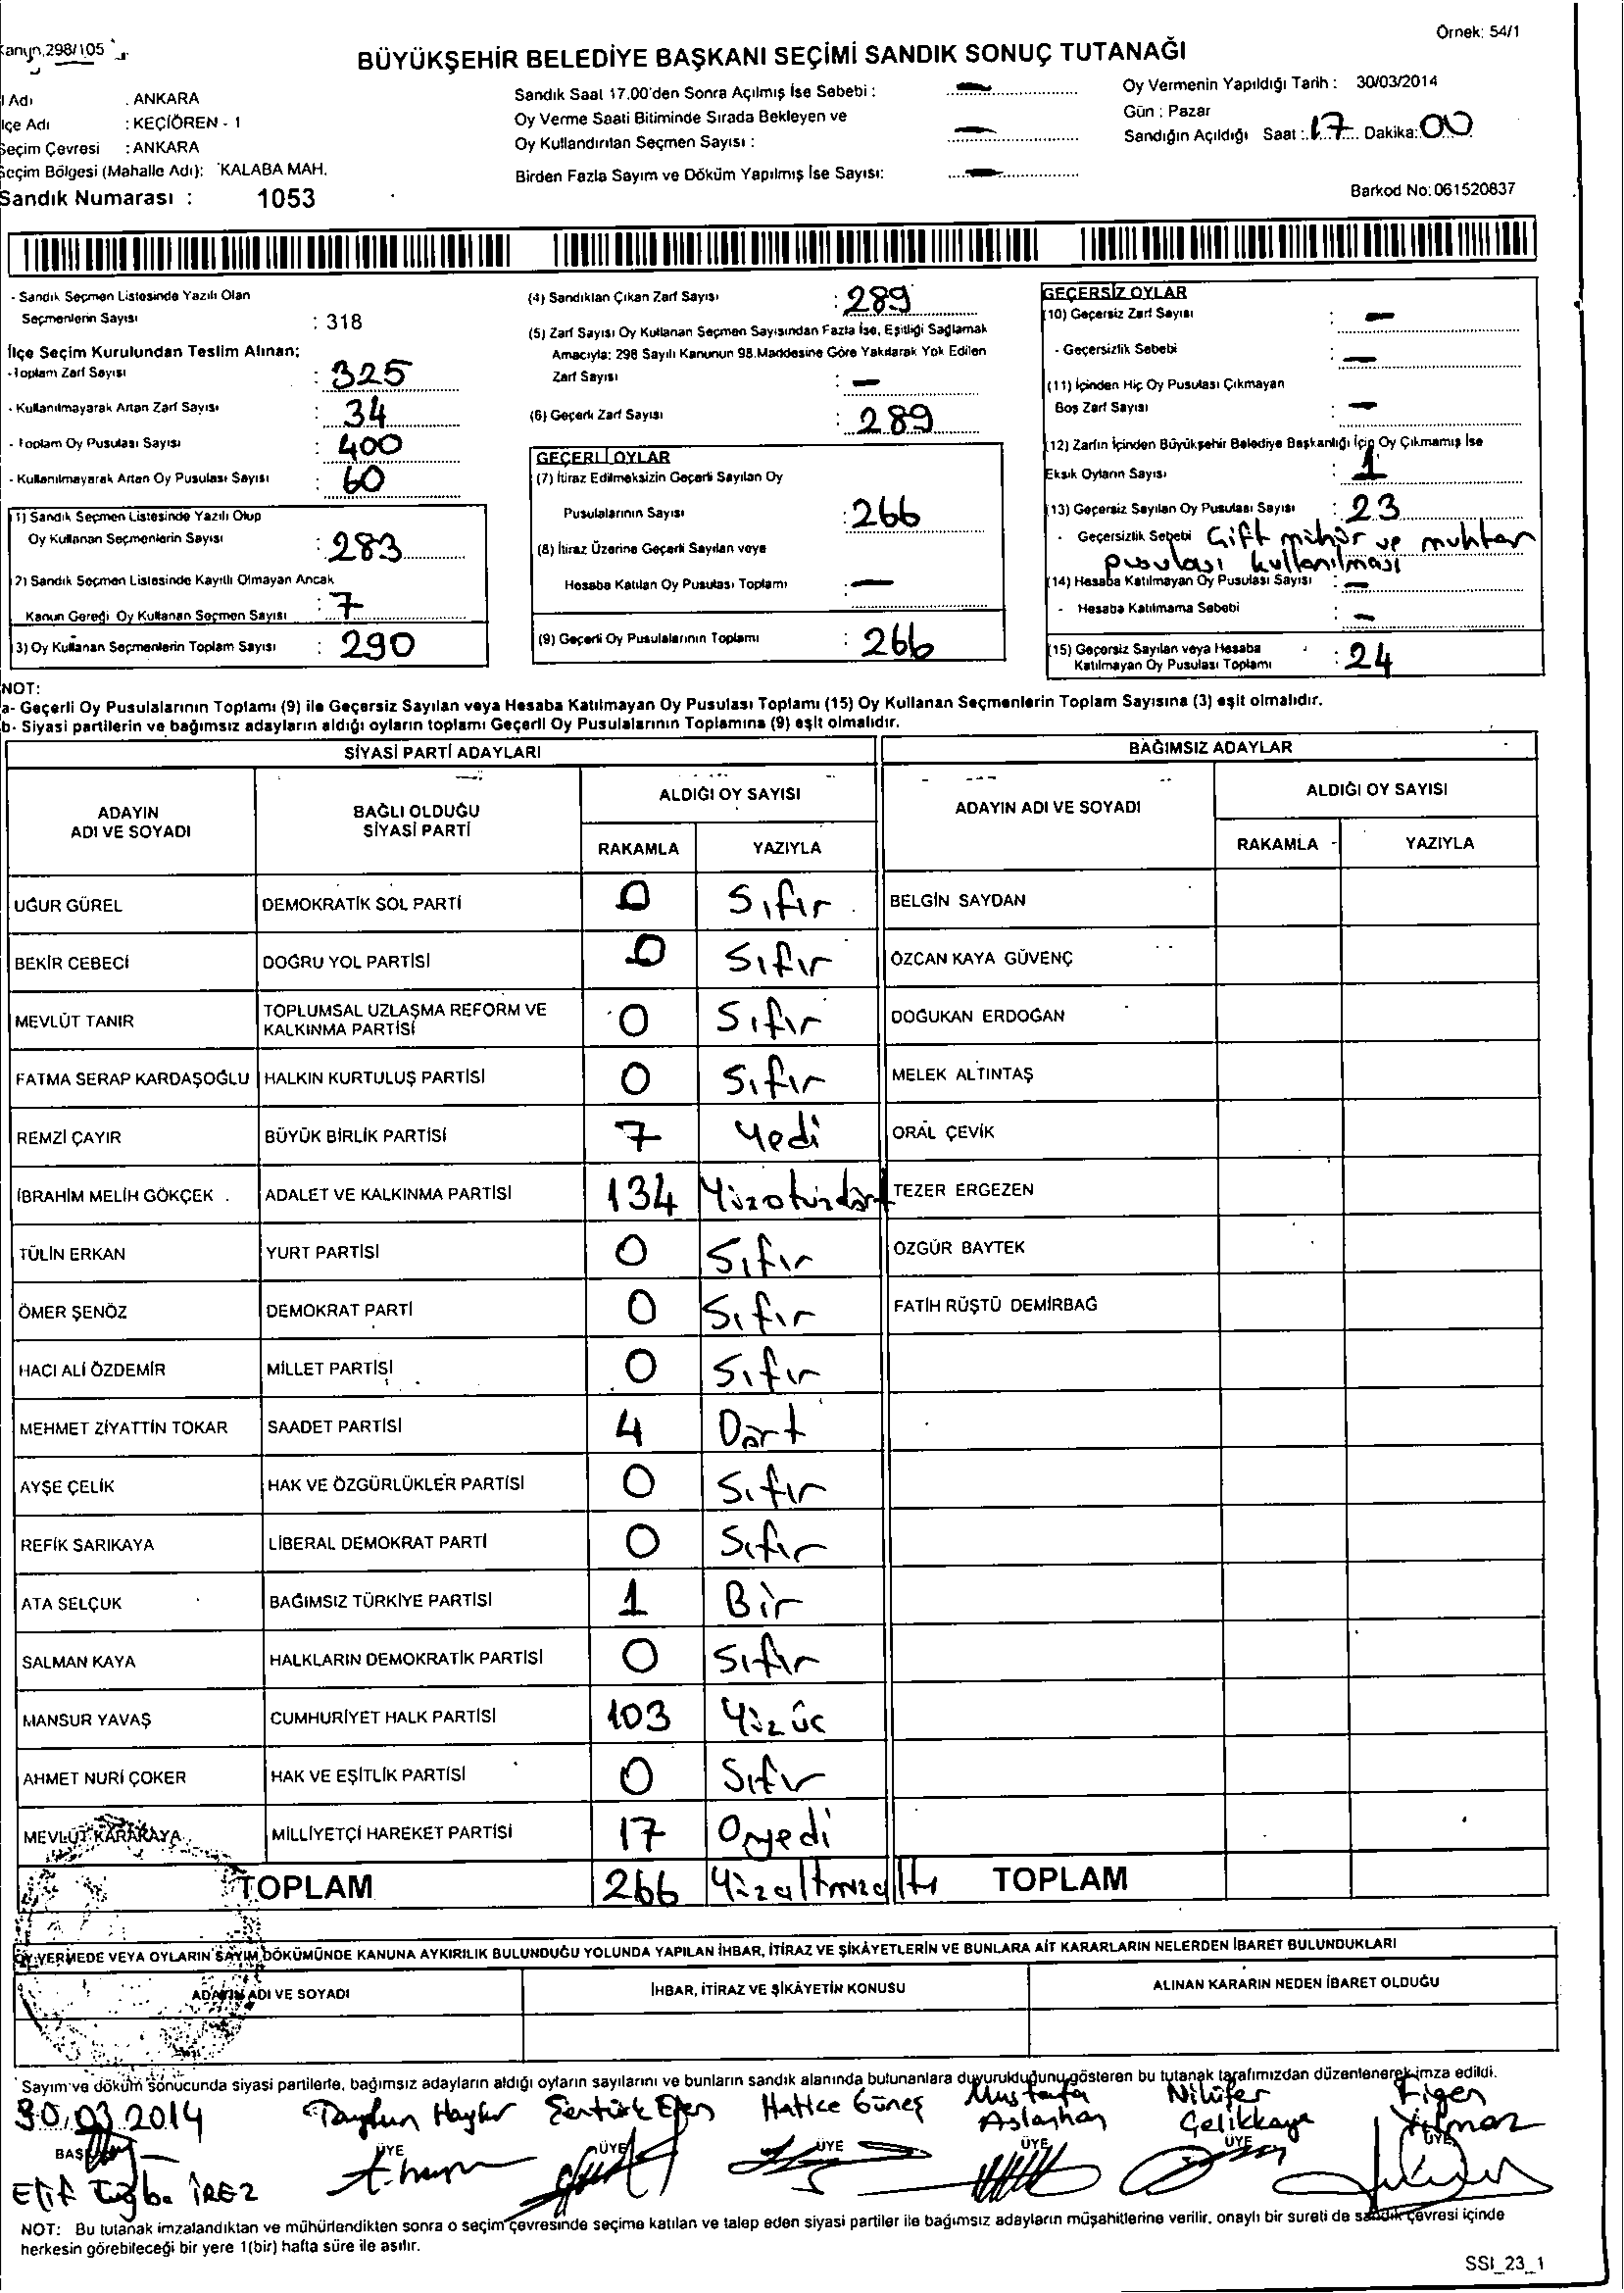 Kanun,298/105
Örnek: 54/1
BÜYÜKŞEHİR BELEDİYE BAŞKANI SEÇİMİ SANDIK SONUÇ TUTANAĞI
İl Adı : ANKARA
İlçe Adı : KEÇİÖREN - 1
Seçim Çevresi : ANKARA
Seçim Bölgesi (Mahalle Adı): KALABA MAH.
Sandık Numarası : 1053
Sandık Saat 17.00'den Sonra Açılmış İse Sebebi : -
Oy Verme Saati Bitiminde Sırada Bekleyen ve
Oy Kullandırılan Seçmen Sayısı : -
Birden Fazla Sayım ve Döküm Yapılmış İse Sayısı: -
Oy Vermenin Yapıldığı Tarih : 30/03/2014
Gün : Pazar
Sandığın Açıldığı Saat : 17 Dakika: 00
Barkod No: 061520837
- Sandık Seçmen Listesinde Yazılı Olan
Seçmenlerin Sayısı : 318
İlçe Seçim Kurulundan Teslim Alınan;
-Toplam Zarf Sayısı : 325
- Kullanılmayarak Artan Zarf Sayısı : 34
- Toplam Oy Pusulası Sayısı : 400
- Kullanılmayarak Artan Oy Pusulası Sayısı : 60
(1) Sandık Seçmen Listesinde Yazılı Olup
Oy Kullanan Seçmenlerin Sayısı : 283
(2) Sandık Seçmen Listesinde Kayıtlı Olmayan Ancak
Kanun Gereği Oy Kullanan Seçmen Sayısı : 7
(3) Oy Kullanan Seçmenlerin Toplam Sayısı : 290
(4) Sandıktan Çıkan Zarf Sayısı : 289
(5) Zarf Sayısı Oy Kullanan Seçmen Sayısından Fazla İse, Eşitliği Sağlamak
Amacıyla; 298 Sayılı Kanunun 98.Maddesine Göre Yakılarak Yok Edilen
Zarf Sayısı : -
(6) Geçerli Zarf Sayısı : 289
GEÇERLİ OYLAR
(7) İtiraz Edilmeksizin Geçerli Sayılan Oy
Pusulalarının Sayısı : 266
(8) İtiraz Üzerine Geçerli Sayılan veya
Hesaba Katılan Oy Pusulası Toplamı : -
(9) Geçerli Oy Pusulalarının Toplamı : 266
GEÇERSİZ OYLAR
(10) Geçersiz Zarf Sayısı : -
- Geçersizlik Sebebi : -
(11) İçinden Hiç Oy Pusulası Çıkmayan
Boş Zarf Sayısı : -
(12) Zarfın İçinden Büyükşehir Belediye Başkanlığı İçin Oy Çıkmamış İse
Eksik Oyların Sayısı : 1
(13) Geçersiz Sayılan Oy Pusulası Sayısı : 23
- Geçersizlik Sebebi Çift mühür ve muhtar
pusulası kullanılması
(14) Hesaba Katılmayan Oy Pusulası Sayısı : -
- Hesaba Katılmama Sebebi : -
(15) Geçersiz Sayılan veya Hesaba
Katılmayan Oy Pusulası Toplamı : 24
NOT:
a- Geçerli Oy Pusulalarının Toplamı (9) ile Geçersiz Sayılan veya Hesaba Katılmayan Oy Pusulası Toplamı (15) Oy Kullanan Seçmenlerin Toplam Sayısına (3) eşit olmalıdır.
b- Siyasi partilerin ve bağımsız adayların aldığı oyların toplamı Geçerli Oy Pusulalarının Toplamına (9) eşit olmalıdır.
SİYASİ PARTİ ADAYLARI BAĞIMSIZ ADAYLAR
ADAYIN ADI VE SOYADI
BAĞLI OLDUĞU SİYASİ PARTİ
ALDIĞI OY SAYISI
RAKAMLA YAZIYLA
ADAYIN ADI VE SOYADI
ALDIĞI OY SAYISI
RAKAMLA YAZIYLA
UĞUR GÜREL DEMOKRATİK SOL PARTİ 0 Sıfır BELGİN SAYDAN
BEKİR CEBECİ DOĞRU YOL PARTİSİ 0 Sıfır ÖZCAN KAYA GÜVENÇ
MEVLÜT TANIR TOPLUMSAL UZLAŞMA REFORM VE KALKINMA PARTİSİ 0 Sıfır DOĞUKAN ERDOĞAN
FATMA SERAP KARDAŞOĞLU HALKIN KURTULUŞ PARTİSİ 0 Sıfır MELEK ALTINTAŞ
REMZİ ÇAYIR BÜYÜK BİRLİK PARTİSİ 7 Yedi ORAL ÇEVİK
İBRAHİM MELİH GÖKÇEK ADALET VE KALKINMA PARTİSİ 134 Yüzotuzdört TEZER ERGEZEN
TÜLİN ERKAN YURT PARTİSİ 0 Sıfır ÖZGÜR BAYTEK
ÖMER ŞENÖZ DEMOKRAT PARTİ 0 Sıfır FATİH RÜŞTÜ DEMİRBAĞ
HACI ALİ ÖZDEMİR MİLLET PARTİSİ 0 Sıfır
MEHMET ZİYATTİN TOKAR SAADET PARTİSİ 4 Dört
AYŞE ÇELİK HAK VE ÖZGÜRLÜKLER PARTİSİ 0 Sıfır
REFİK SARIKAYA LİBERAL DEMOKRAT PARTİ 0 Sıfır
ATA SELÇUK BAĞIMSIZ TÜRKİYE PARTİSİ 1 Bir
SALMAN KAYA HALKLARIN DEMOKRATİK PARTİSİ 0 Sıfır
MANSUR YAVAŞ CUMHURİYET HALK PARTİSİ 103 Yüz üç
AHMET NURİ ÇOKER HAK VE EŞİTLİK PARTİSİ 0 Sıfır
MEVLÜT KARAKAYA MİLLİYETÇİ HAREKET PARTİSİ 17 Onyedi
TOPLAM 266 Yüzaltmışaltı TOPLAM
OY VERMEDE VEYA OYLARIN SAYIM DÖKÜMÜNDE KANUNA AYKIRILIK BULUNDUĞU YOLUNDA YAPILAN İHBAR, İTİRAZ VE ŞİKÂYETLERİN VE BUNLARA AİT KARARLARIN NELERDEN İBARET BULUNDUKLARI
ADAYIN ADI VE SOYADI İHBAR, İTİRAZ VE ŞİKÂYETİN KONUSU ALINAN KARARIN NEDEN İBARET OLDUĞU
Sayım ve döküm sonucunda siyasi partilerle, bağımsız adayların aldığı oyların sayılarını ve bunların sandık alanında bulunanlara duyurulduğunu gösteren bu tutanak tarafımızdan düzenlenerek imza edildi.
30.03.2014 Hatice Güneş Mustafa Aslanhan Nilüfer Çelikkaya Figen Yılmaz
BAŞKAN ÜYE ÜYE ÜYE ÜYE ÜYE ÜYE
Elif Tuğba İREZ
NOT: Bu tutanak imzalandıktan ve mühürlendikten sonra o seçim çevresinde seçime katılan ve talep eden siyasi partiler ile bağımsız adayların müşahitlerine verilir, onaylı bir sureti de sandık çevresi içinde
herkesin görebileceği bir yere 1(bir) hafta süre ile asılır.
SSI_23_1